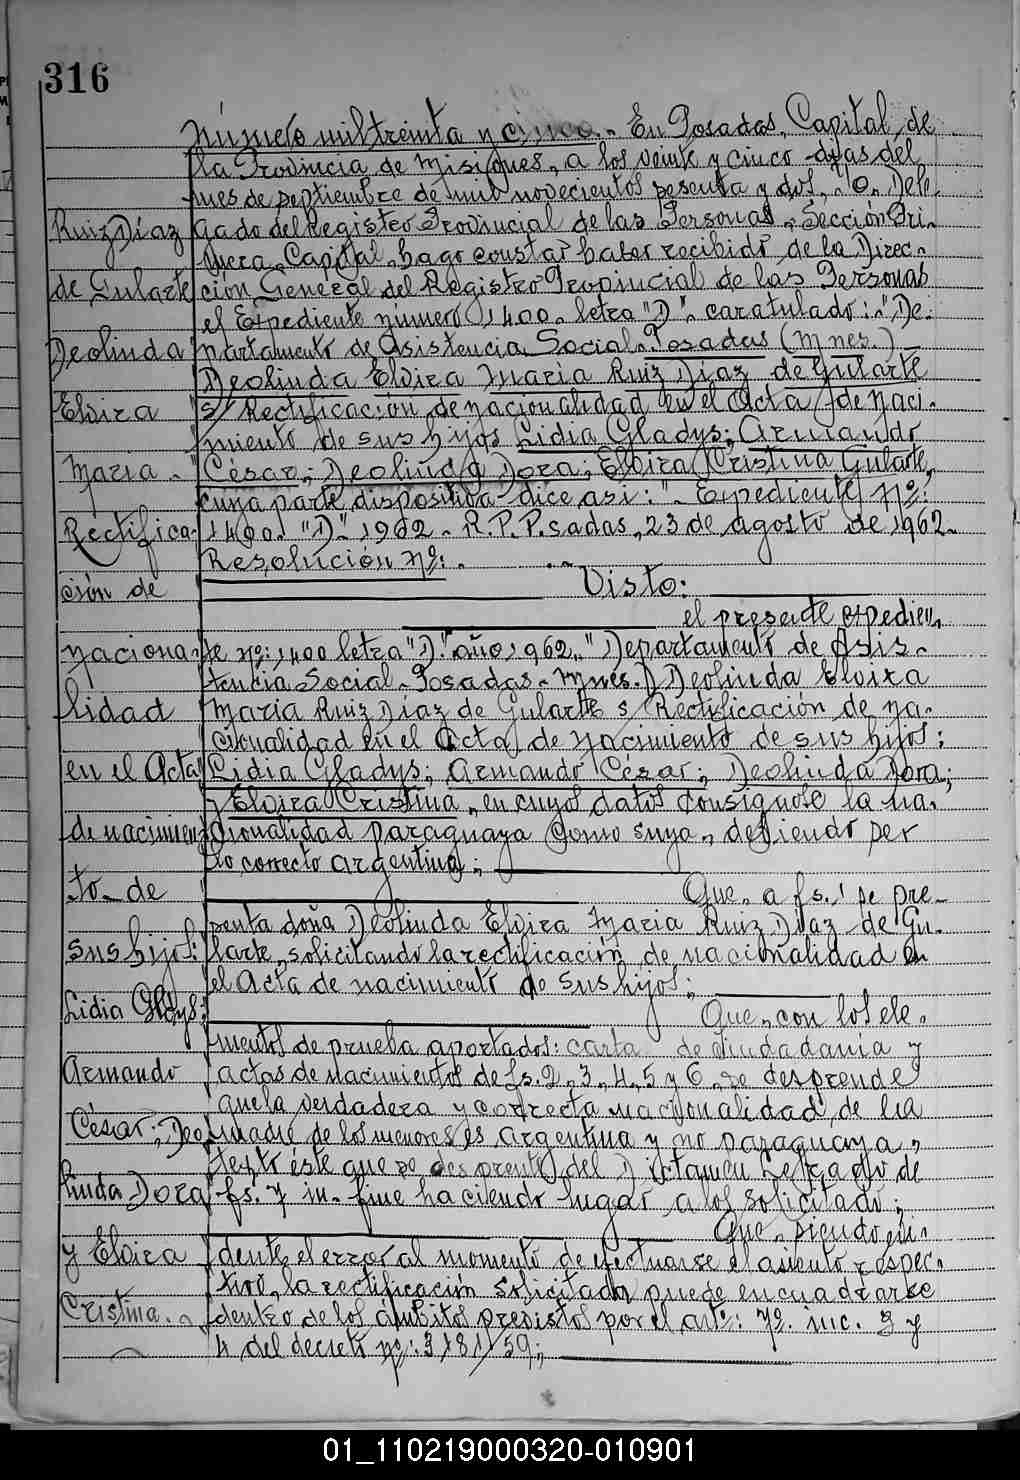 316
Número mil treinta y cinco.- En Posadas, Capital, de
la Provincia de Misiones, a los veinte y cinco días del
mes de septiembre de mil novecientos sesenta y dos, Dele-
Ruiz Díaz
gado del Registro Provincial de las Personas, Sección Pri-
mera, Capital, hago constar haber recibido de la Direc-
de Gularte
ción General del Registro Provincial de las Personas
el Expediente número 1400- letra "D"- caratulado: "De-
Deolinda
partamento de Asistencia Social- Posadas (Mnes.)-
Deolinda Elvira Maria Ruiz Diaz de Gularte
Elvira
s/ Rectificación de nacionalidad en el Acta de naci-
miento de sus hijos Lidia Gladys; Armando
Maria.-
César; Deolinda Dora; Elvira Cristina Gularte,
cuya parte dispositiva dice así: "- Expediente Nº:
Rectifica-
1400- "D"- 1962- R.P.P.sadas, 23 de agosto de 1962-
Resolución Nº:-
ción de
Visto:
el presente expedien-
naciona-
te Nº: 1400 letra "D" año 1962, "Departamento de Asis-
tencia Social- Posadas- Mnes.) Deolinda Elvira
lidad
Maria Ruiz Diaz de Gularte s/ Rectificación de na-
cionalidad en el Acta de nacimiento de sus hijos:
en el Acta
Lidia Gladys; Armando César; Deolinda Dora;
y Elvira Cristina, en cuyos datos consignose la na-
de nacimien-
cionalidad paraguaya como suya, debiendo ser
lo correcto argentina;
to- de
Que, a fs. 1 se pre-
senta doña Deolinda Elvira Maria Ruiz Diaz de Gu-
sus hijos:
larte, solicitando la rectificación de nacionalidad en
el Acta de nacimiento de sus hijos;
Lidia Gladys;
Que, con los ele-
mentos de prueba aportados: carta de ciudadanía y
Armando
actas de nacimientos de fs. 2, 3, 4, 5 y 6, se desprende
que la verdadera y correcta nacionalidad de la
César; Deo-
madre de los menores es argentina y no paraguaya,
textréste que se desprende del Dictamen Letrado de
linda Dora
fs. 7 in- fine haciendo lugar a lo solicitado;
Que, siendo evi-
y Elvira
dente el error al momento de efectuarse el asiento respec-
tivo, la rectificación solicitada puede encuadrarse
Cristina.-
dentro de los ámbitos previstos por el art: 7º. inc. 3 y
4 del decreto Nº: 3181/59;
01_110219000320-010901